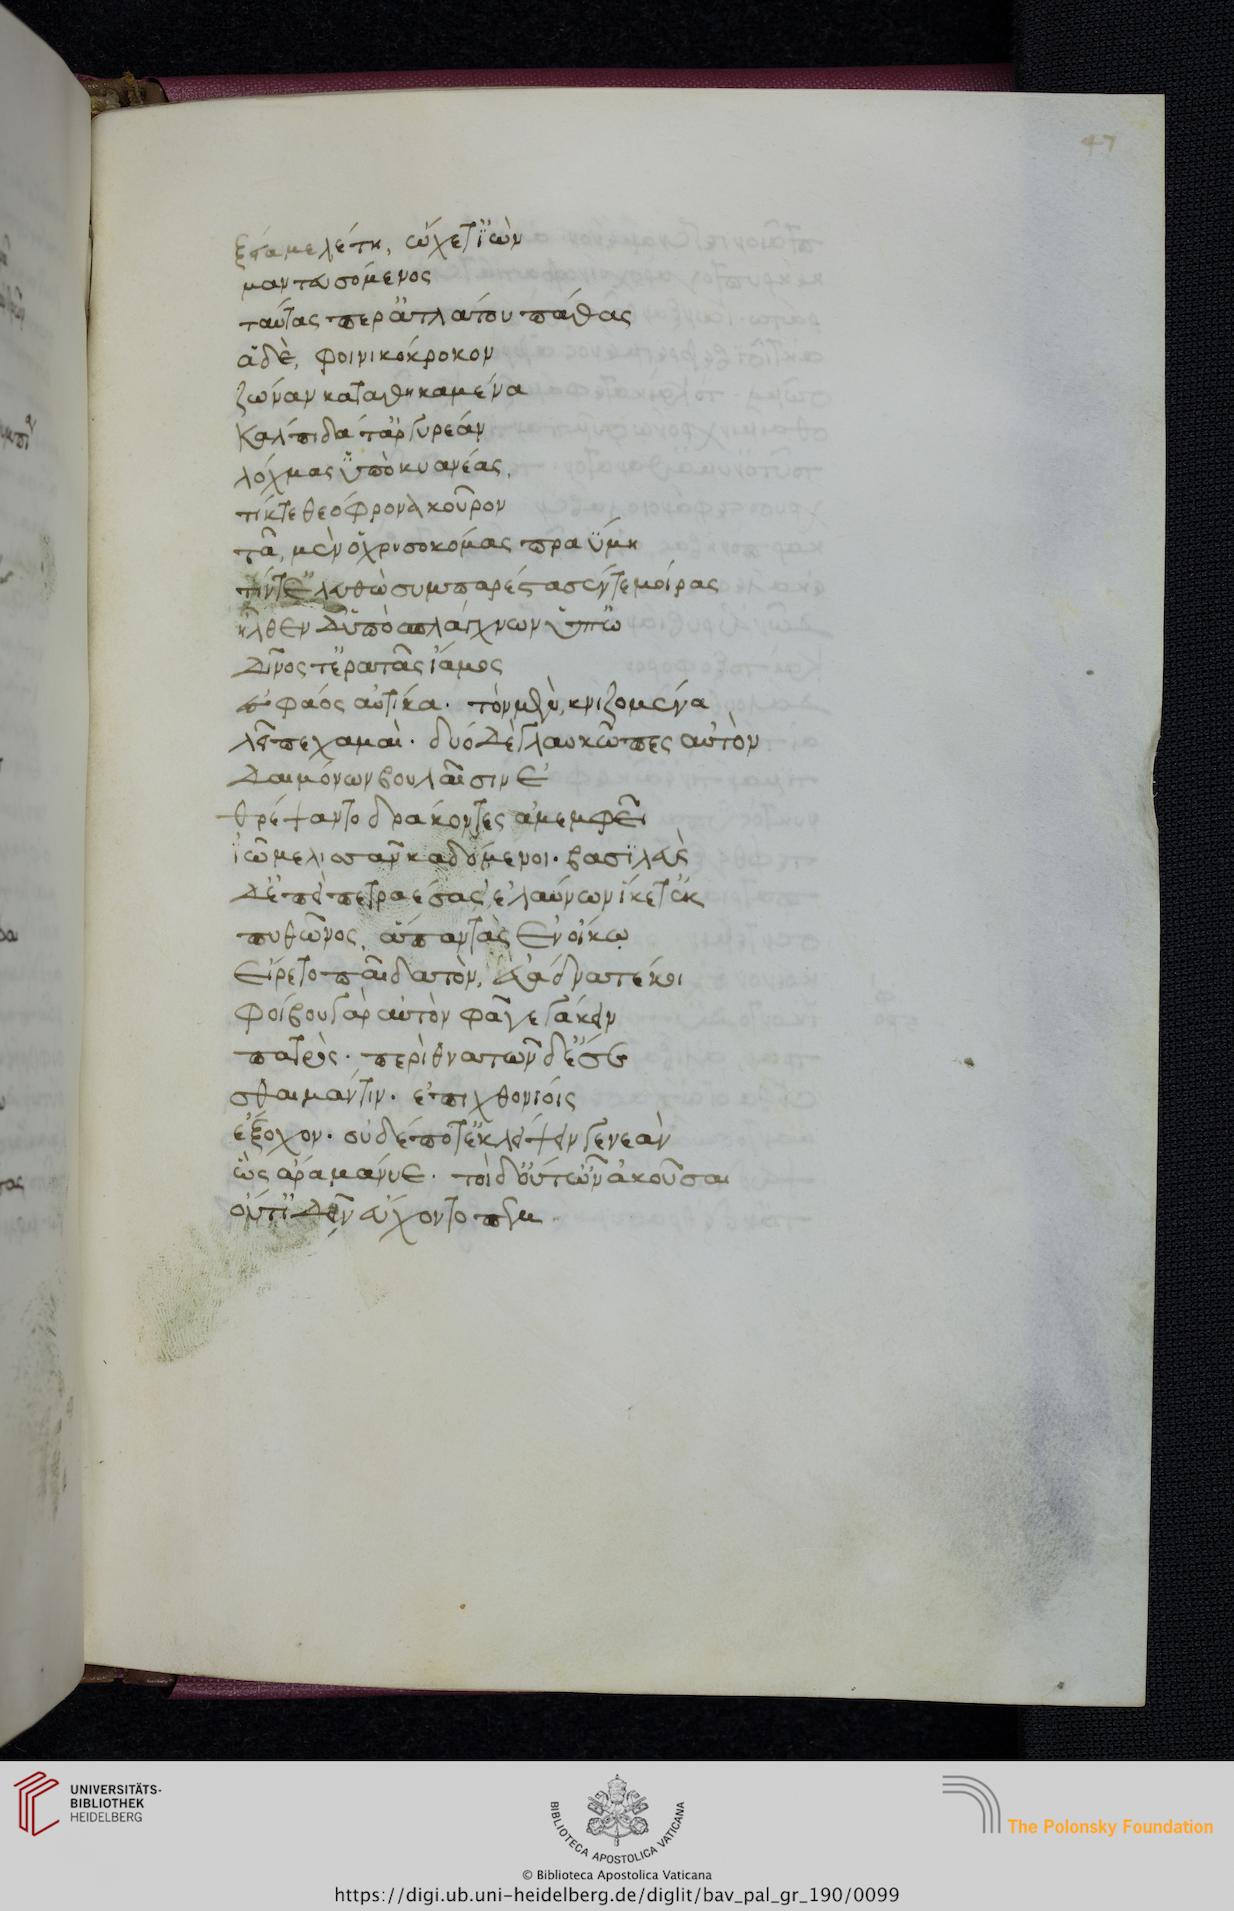 47
ξεία μελέτη, ὤχετ' ἰὼν
μαντευσόμενος
ταύτας περ ἀτλάτου πάθας
ἁ δὲ, φοινικόκροκον
ζώναν καταθηκαμένα
κάλπιδά τ' ἀργυρέαν
λόχμας ὑπὸ κυανέας,
τίκτε θεόφρονα κοῦρον
τᾷ, μὲν ὁ χρυσοκόμας πραΰμη
τίν τ' Ἐλευθὼ συμπαρέστασέν τε μοίρας
ἦλθεν δ' ὑπὸ σπλάγχνων ὑπ' ὠ
δῖνος τ' ἐρατᾶς ἴαμος
ἐς φάος αὐτίκα. τὸν μὲν, κνιζομένα
λεῖπε χαμαὶ. δύο δὲ γλαυκῶπες αὐτὸν
δαιμόνων βουλαῖσιν ἐ
θρέψαντο δράκοντες ἀμεμφεῖ
ἰῷ μελισσᾶν καδόμενοι. βασιλεὺς
δ' ἐπεὶ πετραέσσας ἐλαύνων ἵκετ' ἐκ
πυθῶνος, ἅπαντας ἐν οἴκῳ
εἴρετο παῖδα τὸν, εὐάδνα τέκοι
Φοίβου γὰρ αὐτὸν φᾶ γεγάκειν
πατρός. περὶ θνατῶν δ' ἔσε
σθαι μάντιν. ἐπιχθονίοις
ἔξοχον. οὐδέ ποτ' ἐκλείψειν γενεὰν
ὣς ἄρα μάνυε. τοὶ δ' οὔτ' ὦν ἀκοῦσαι
οὔτ' ἰδεῖν εὔχοντο πεμ
UNIVERSITÄTS-
BIBLIOTHEK
HEIDELBERG
BIBLIOTECA APOSTOLICA VATICANA
© Biblioteca Apostolica Vaticana
The Polonsky Foundation
https://digi.ub.uni-heidelberg.de/diglit/bav_pal_gr_190/0099